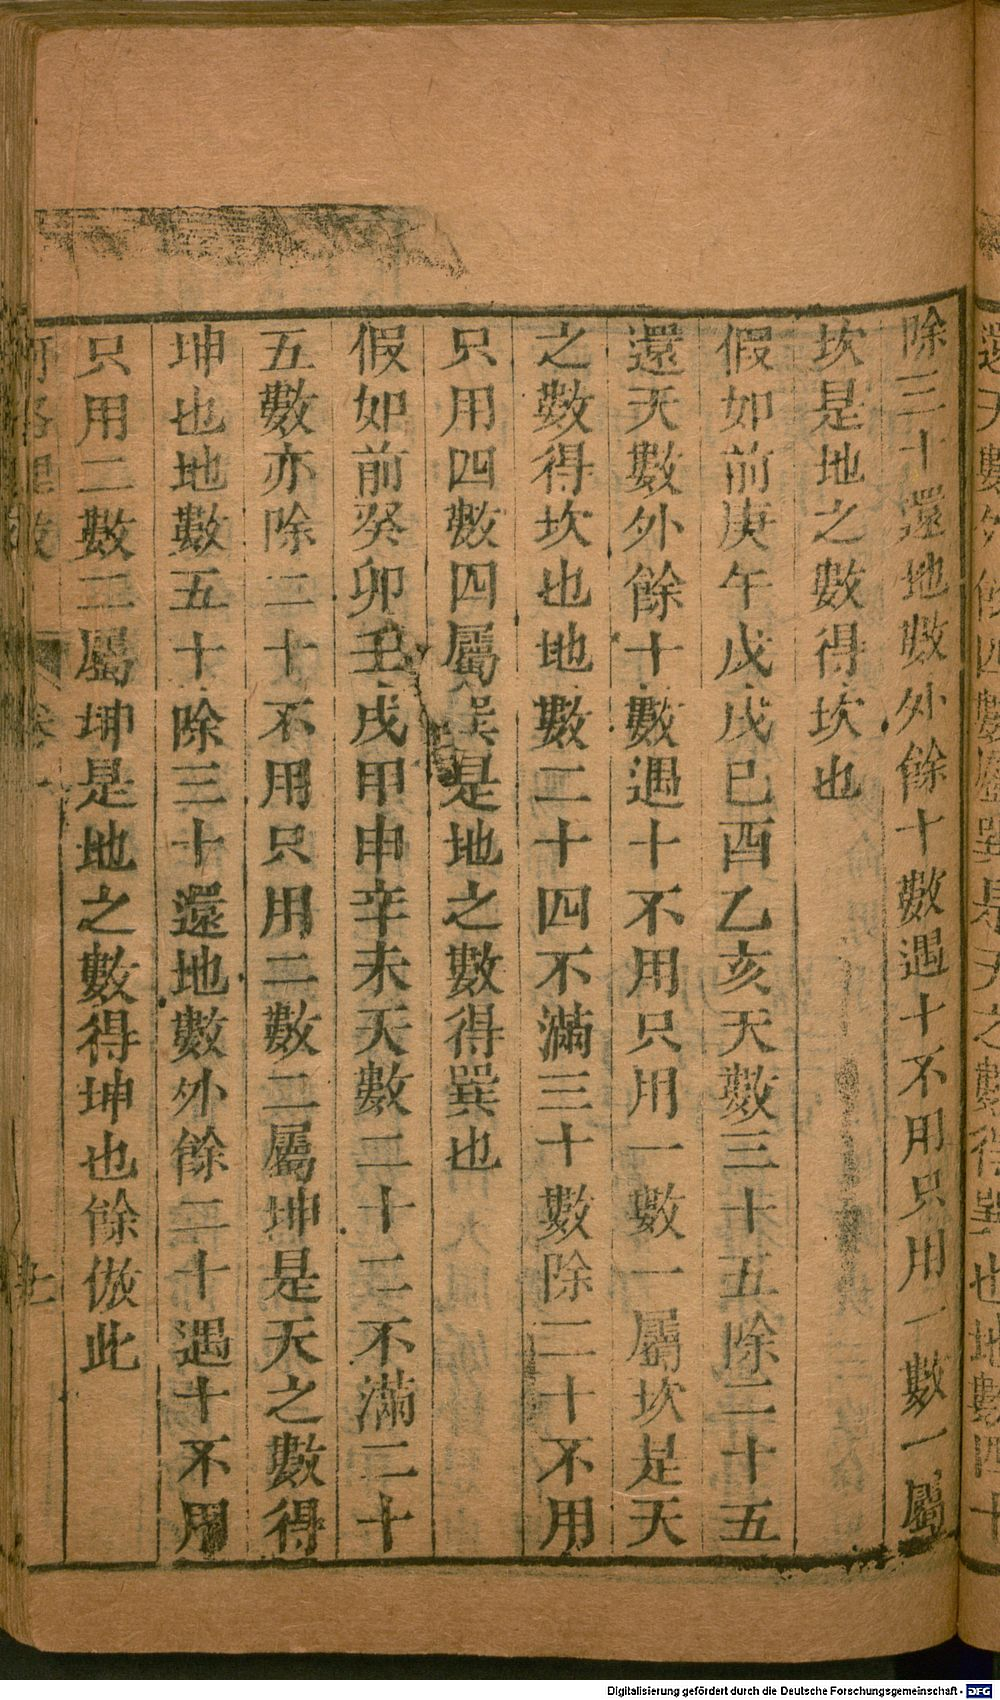 除三十還地數外餘十數遇十不用只用一數一屬
坎是地之數得坎也
假如前庚午戊戌己酉乙亥天數三十五除二十五
還天數外餘十數遇十不用只用一數一屬坎是天
之數得坎也地數二十四不滿三十數除二十不用
只用四數四屬巽是地之數得巽也
假如前癸卯壬戌甲申辛未天數二十二不滿二十
五數亦除二十不用只用二數二屬坤是天之數得
坤也地數五十除三十還地數外餘二十遇十不用
只用二數二屬坤是地之數得坤也餘倣此
Digitalisierung gefördert durch die Deutsche Forschungsgemeinschaft - DFG